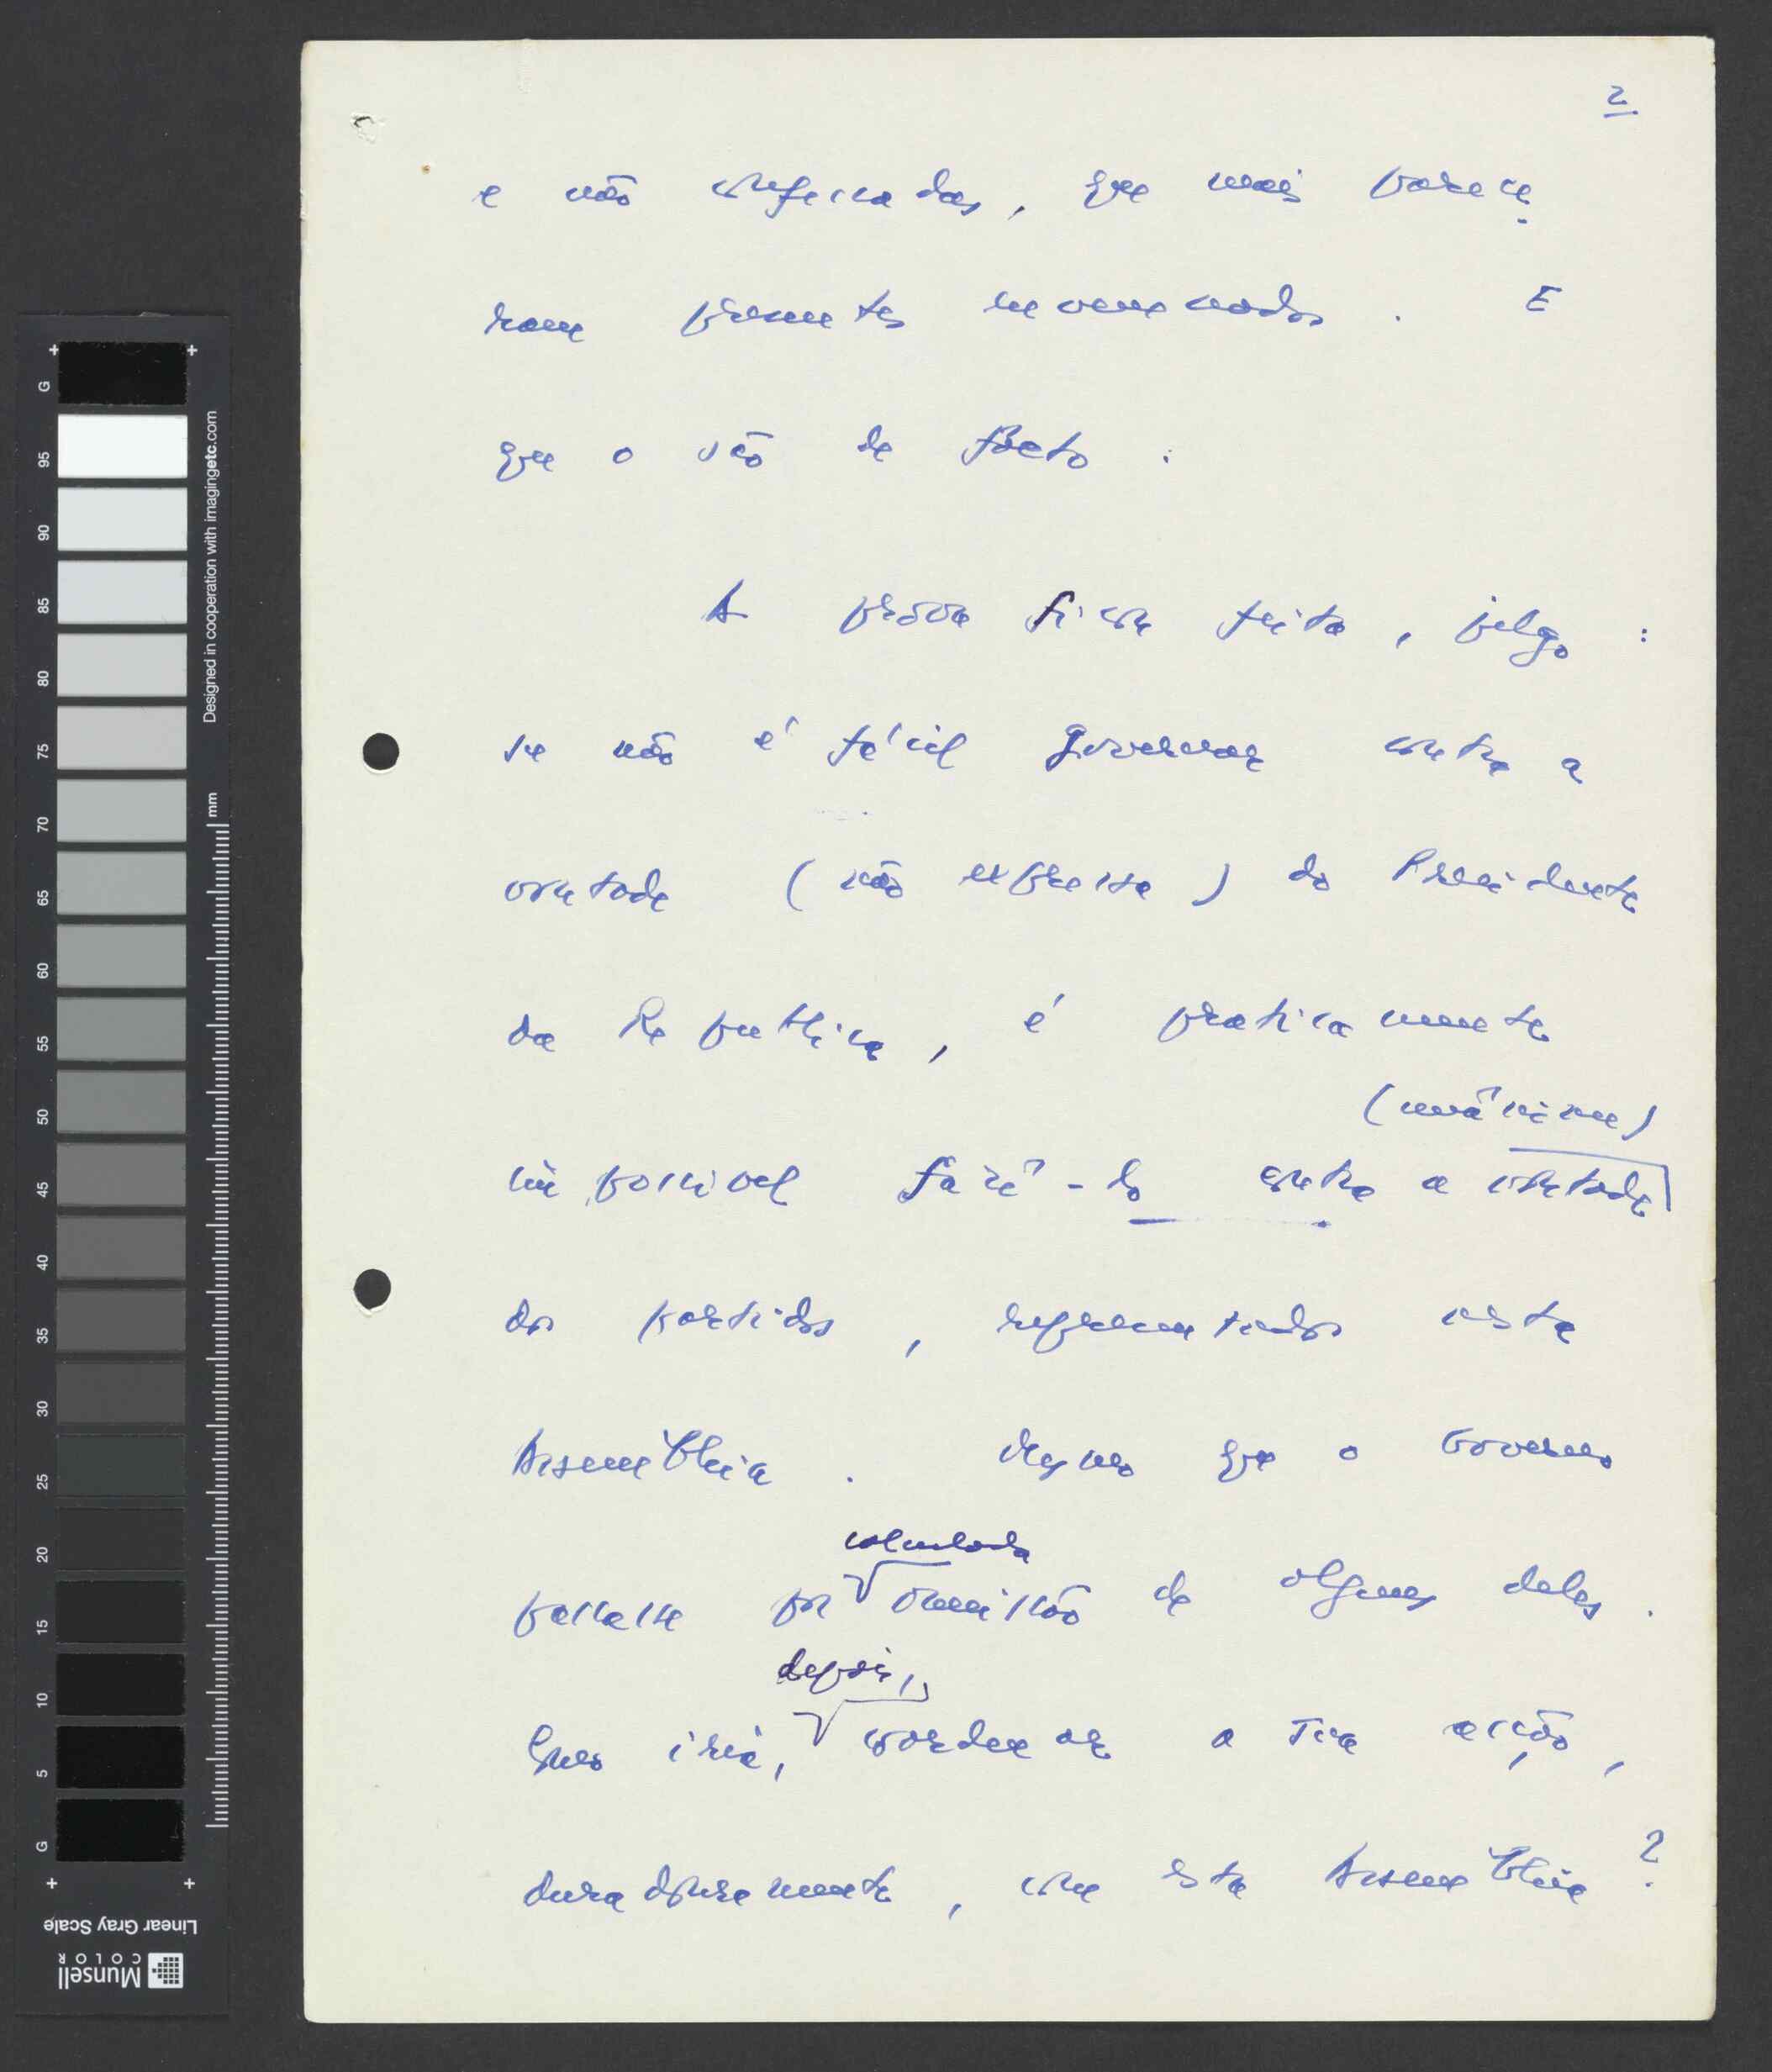 2
e não confessadas, que mais parece-
ram presentes envenenados. E
que o são de facto.
A prova ficou feita, julgo:
se não é fácil governar contra a
vontade (não expressa) do Presidente
da Republica, é praticamente
impossivel fazê-lo contra a vontade (unânime)
dos partidos, representados nesta
Assembleia. Mesmo que o Governo
passasse por calculada omissão de alguns deles.
Como iria, depois, coordenar a sua acção,
duradouramente, com esta Assembleia?
G 95 90 85 80 75 70 65 60 55 50 45 40 35 30 25 20 15 10 5 G
Designed in cooperation with imagingetc.com
mm
Linear Gray Scale
Munsell
COLOR